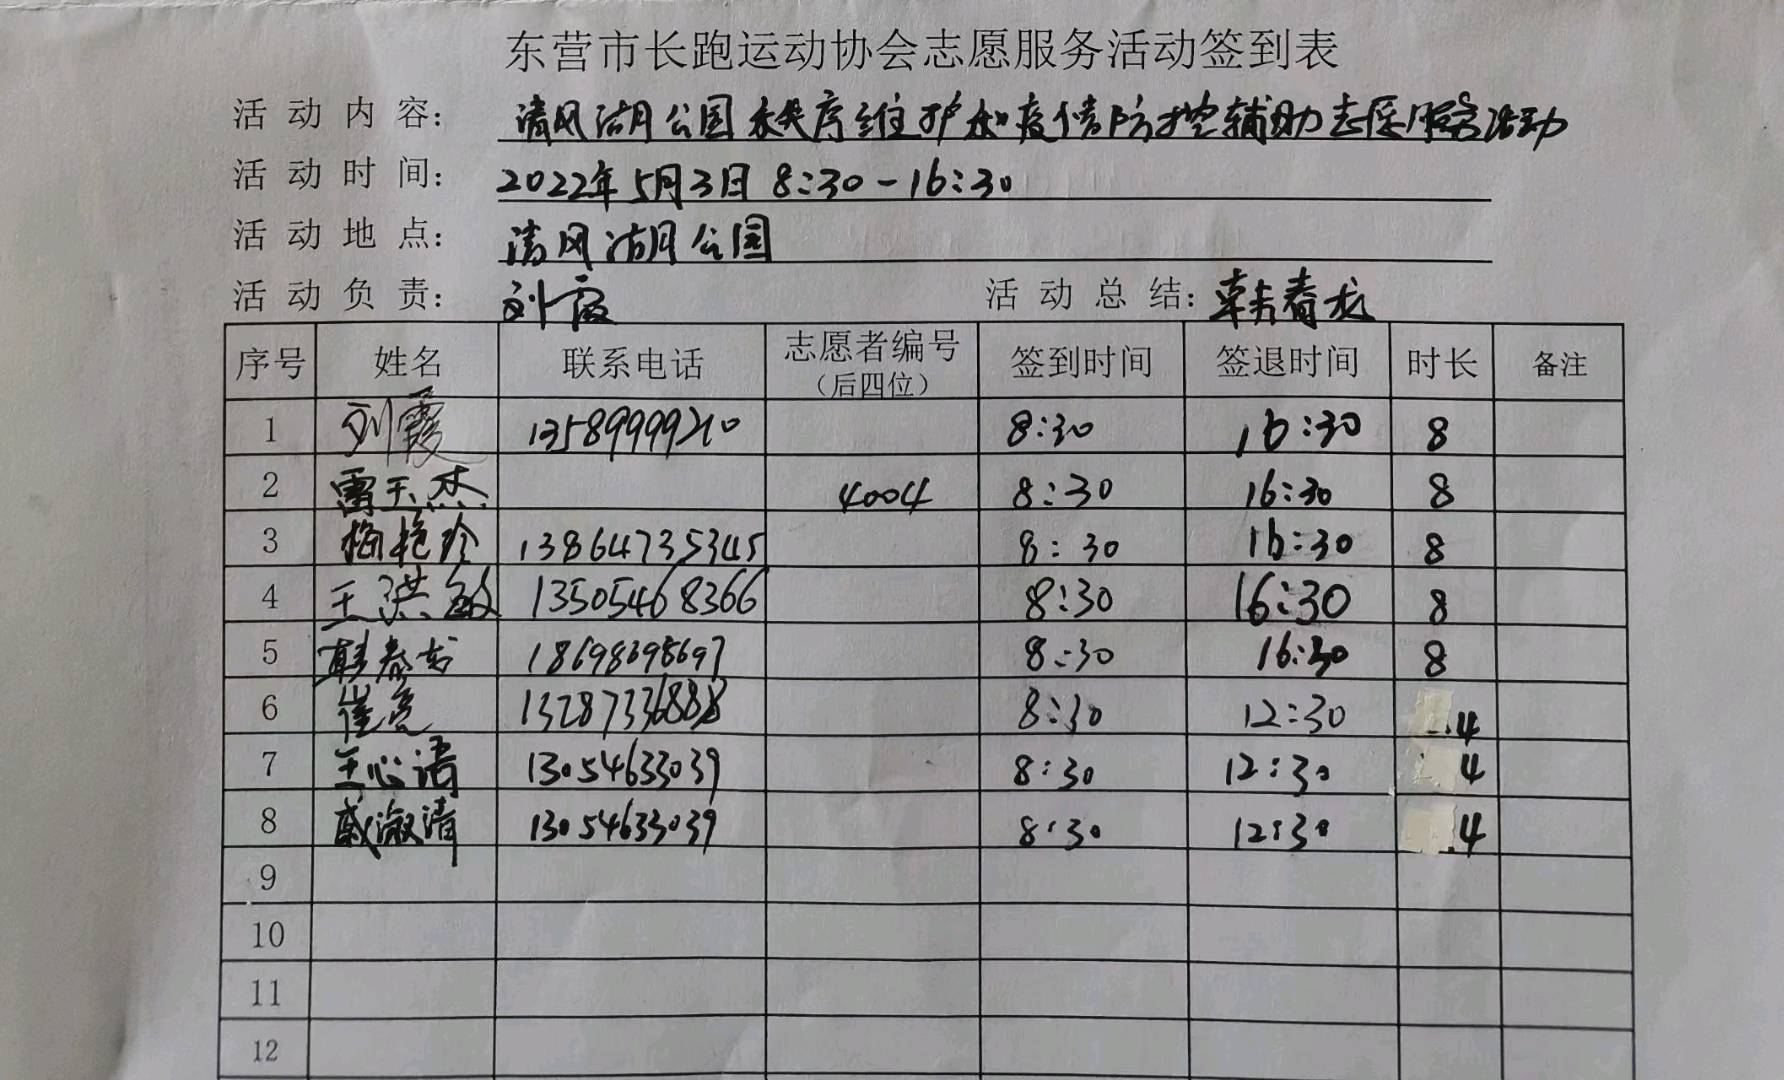 东营市长跑运动协会志愿服务活动签到表
活动内容：清风湖公园秩序维护和疫情防控辅助志愿服务活动
活动时间：2022年5月3日 8:30-16:30
活动地点：清风湖公园
活动负责：刘霞 活动总结：韩春龙
序号 姓名 联系电话 志愿者编号（后四位） 签到时间 签退时间 时长 备注
1 刘霞 13589999210 8:30 16:30 8
2 雷玉杰 4004 8:30 16:30 8
3 梅艳玲 13864735345 8:30 16:30 8
4 王洪敏 13505468366 8:30 16:30 8
5 韩春龙 18698698697 8:30 16:30 8
6 崔亮 13287336888 8:30 12:30 4
7 王心语 13054633039 8:30 12:30 4
8 戚淑清 13054633039 8:30 12:30 4
9
10
11
12